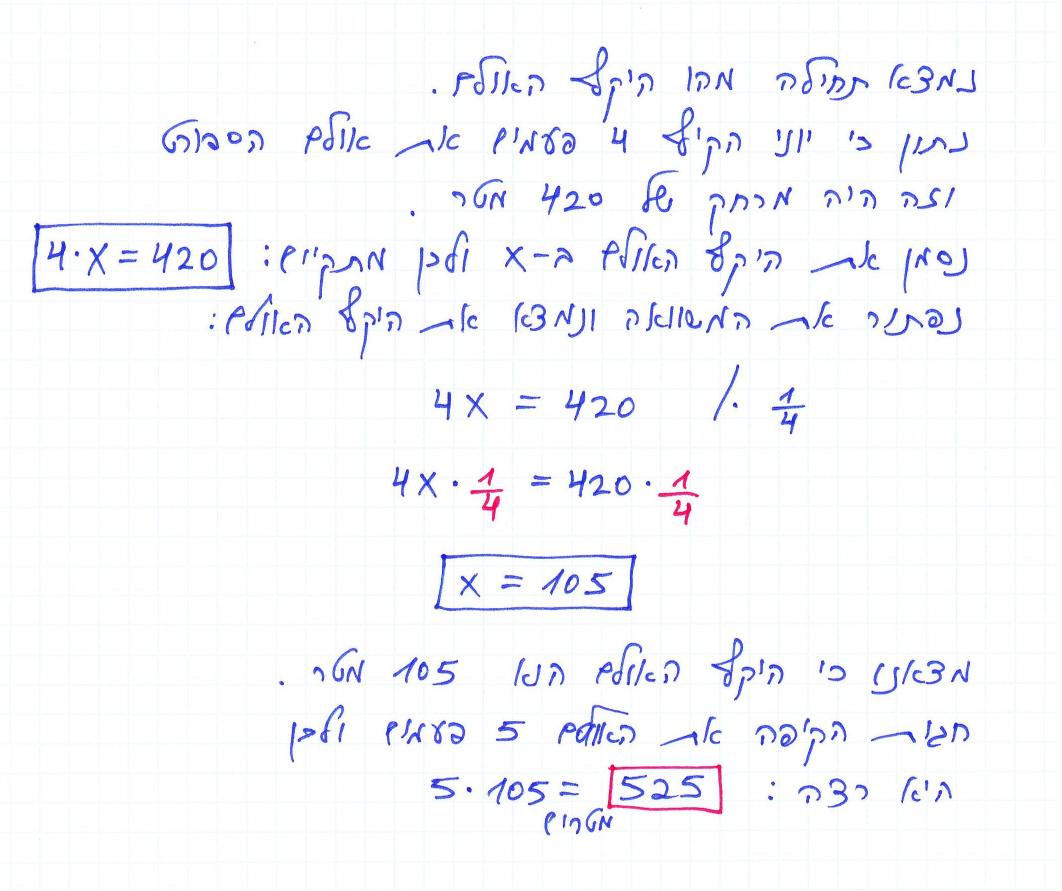 נמצא תחילה מהו היקף האולם.
נתון כי יוני הקיף 4 פעמים את אולם הספורט
וזה היה מרחק של 420 מטר.
נסמן את היקף האולם ב-x ולכן מתקיים: 4·x = 420
נפתור את המשוואה ונמצא את היקף האולם:
4x = 420 /· 1/4
4x · 1/4 = 420 · 1/4
x = 105
מצאנו כי היקף האולם הוא 105 מטר.
חגית הקיפה את האולם 5 פעמים ולכן
היא רצה: 5·105 = 525
מטרים